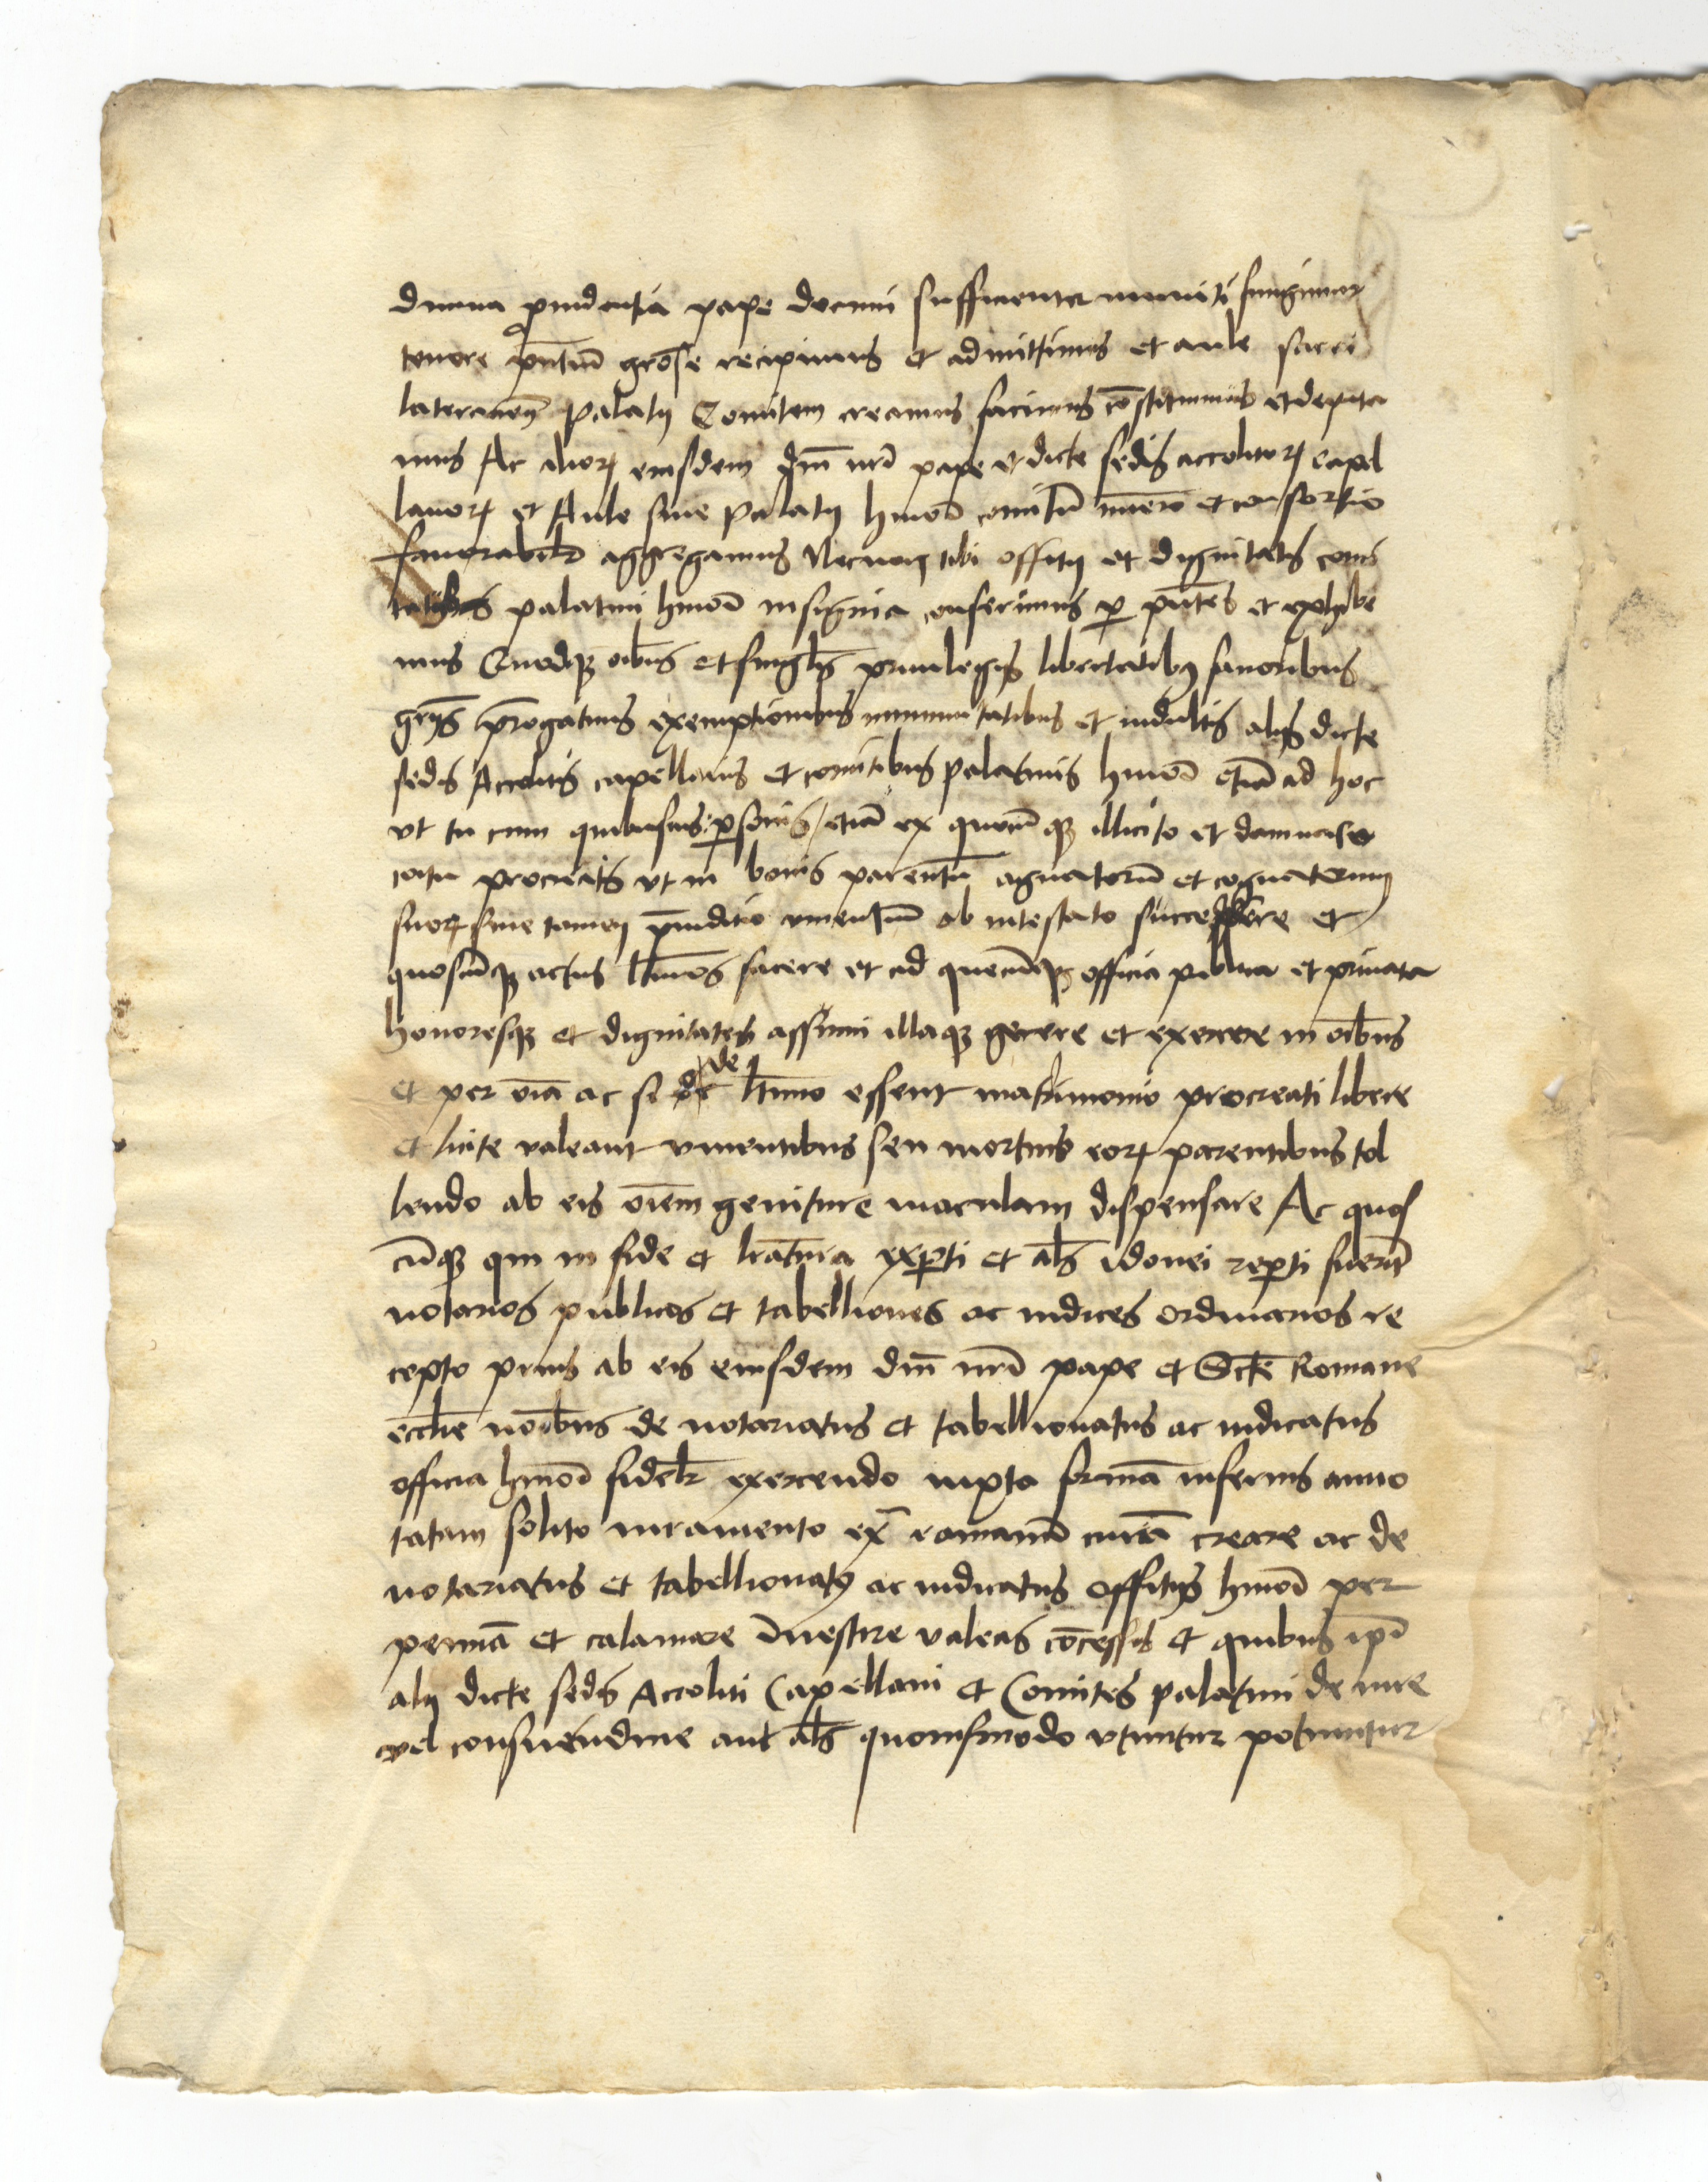 diuina prouidentia pape decimi sufficienter muniti fungimur
tenore pn̄tiū grose recipimus et admittimus et aule sacri
lateraneñ Palatij Comitem creamus facimus cōstituimus et deputa
mus Ac alioꝝ eiusdem dn̄i nr̄i pape et dicte sedis accolitoꝝ capel
lanoꝝ et Aule siue Palatij hmōi comitū nūero et consortio
fauorabilr̄ aggregamus Necnon tibi offitij et dignitatis comi
palatini hmōi insignia conferimus p̱ pn̄tes et exhibe
mus Quodqꝫ oībus et singlīs priuilegijs libertatibꝰ fauoribus
gr̄ijs p̄rogatiuis exemptionibus immunitatibus et indultis alijs dicte
sedis Accolitis capellanis et comitibus palatinis hmōi etiā ad hoc
vt tu cum quibusuis p̱sonis etiā ex quocūqꝫ illicito et damnato
coitu procreatis vt in bonis parentū agnatorū et cognatorum
suoꝝ sine tamen p̄iuditio viuentiū ab intestato succedere et
quoscūqꝫ actus ltīmos facere et ad quecūqꝫ officia publica et priuata
honoresqꝫ et dignitates assūmi illaqꝫ gerere et exercere in oībus
et per oīa ac si de ltīmo essent matrimonio procreati libere
et licite valeant viuentibus seu mortuis eoꝝ parentibus tol
lendo ab eis oīem geniture maculam dispensare Ac quos
cūqꝫ qui in fide et lrātura exp̱ti et al̄s idonei rep̱ti fuerīt
notarios publicos et tabelliones ac iudices ordinarios re
cepto prius ab eis eiusdem dn̄i nr̄i pape et Scte Romane
eccl̄ie nōībus de notariatus et tabellionatus ac iudicatus
officia hmōi fidelr̄ exercendo iuxta formā inferius anno
tatam solito iuramento ex̄ romanā curiā creare ac de
notariatus et tabellionatꝰ ac iudicatus offitijs hmōi per
pennā et calamare īuestire valeas cōcessis et quibus ip̄i
alij dicte sedis Accoliti Capellani et Comites palatini de iure
vel consuetudine aut al̄s quomōdo vtuntur potiuntur